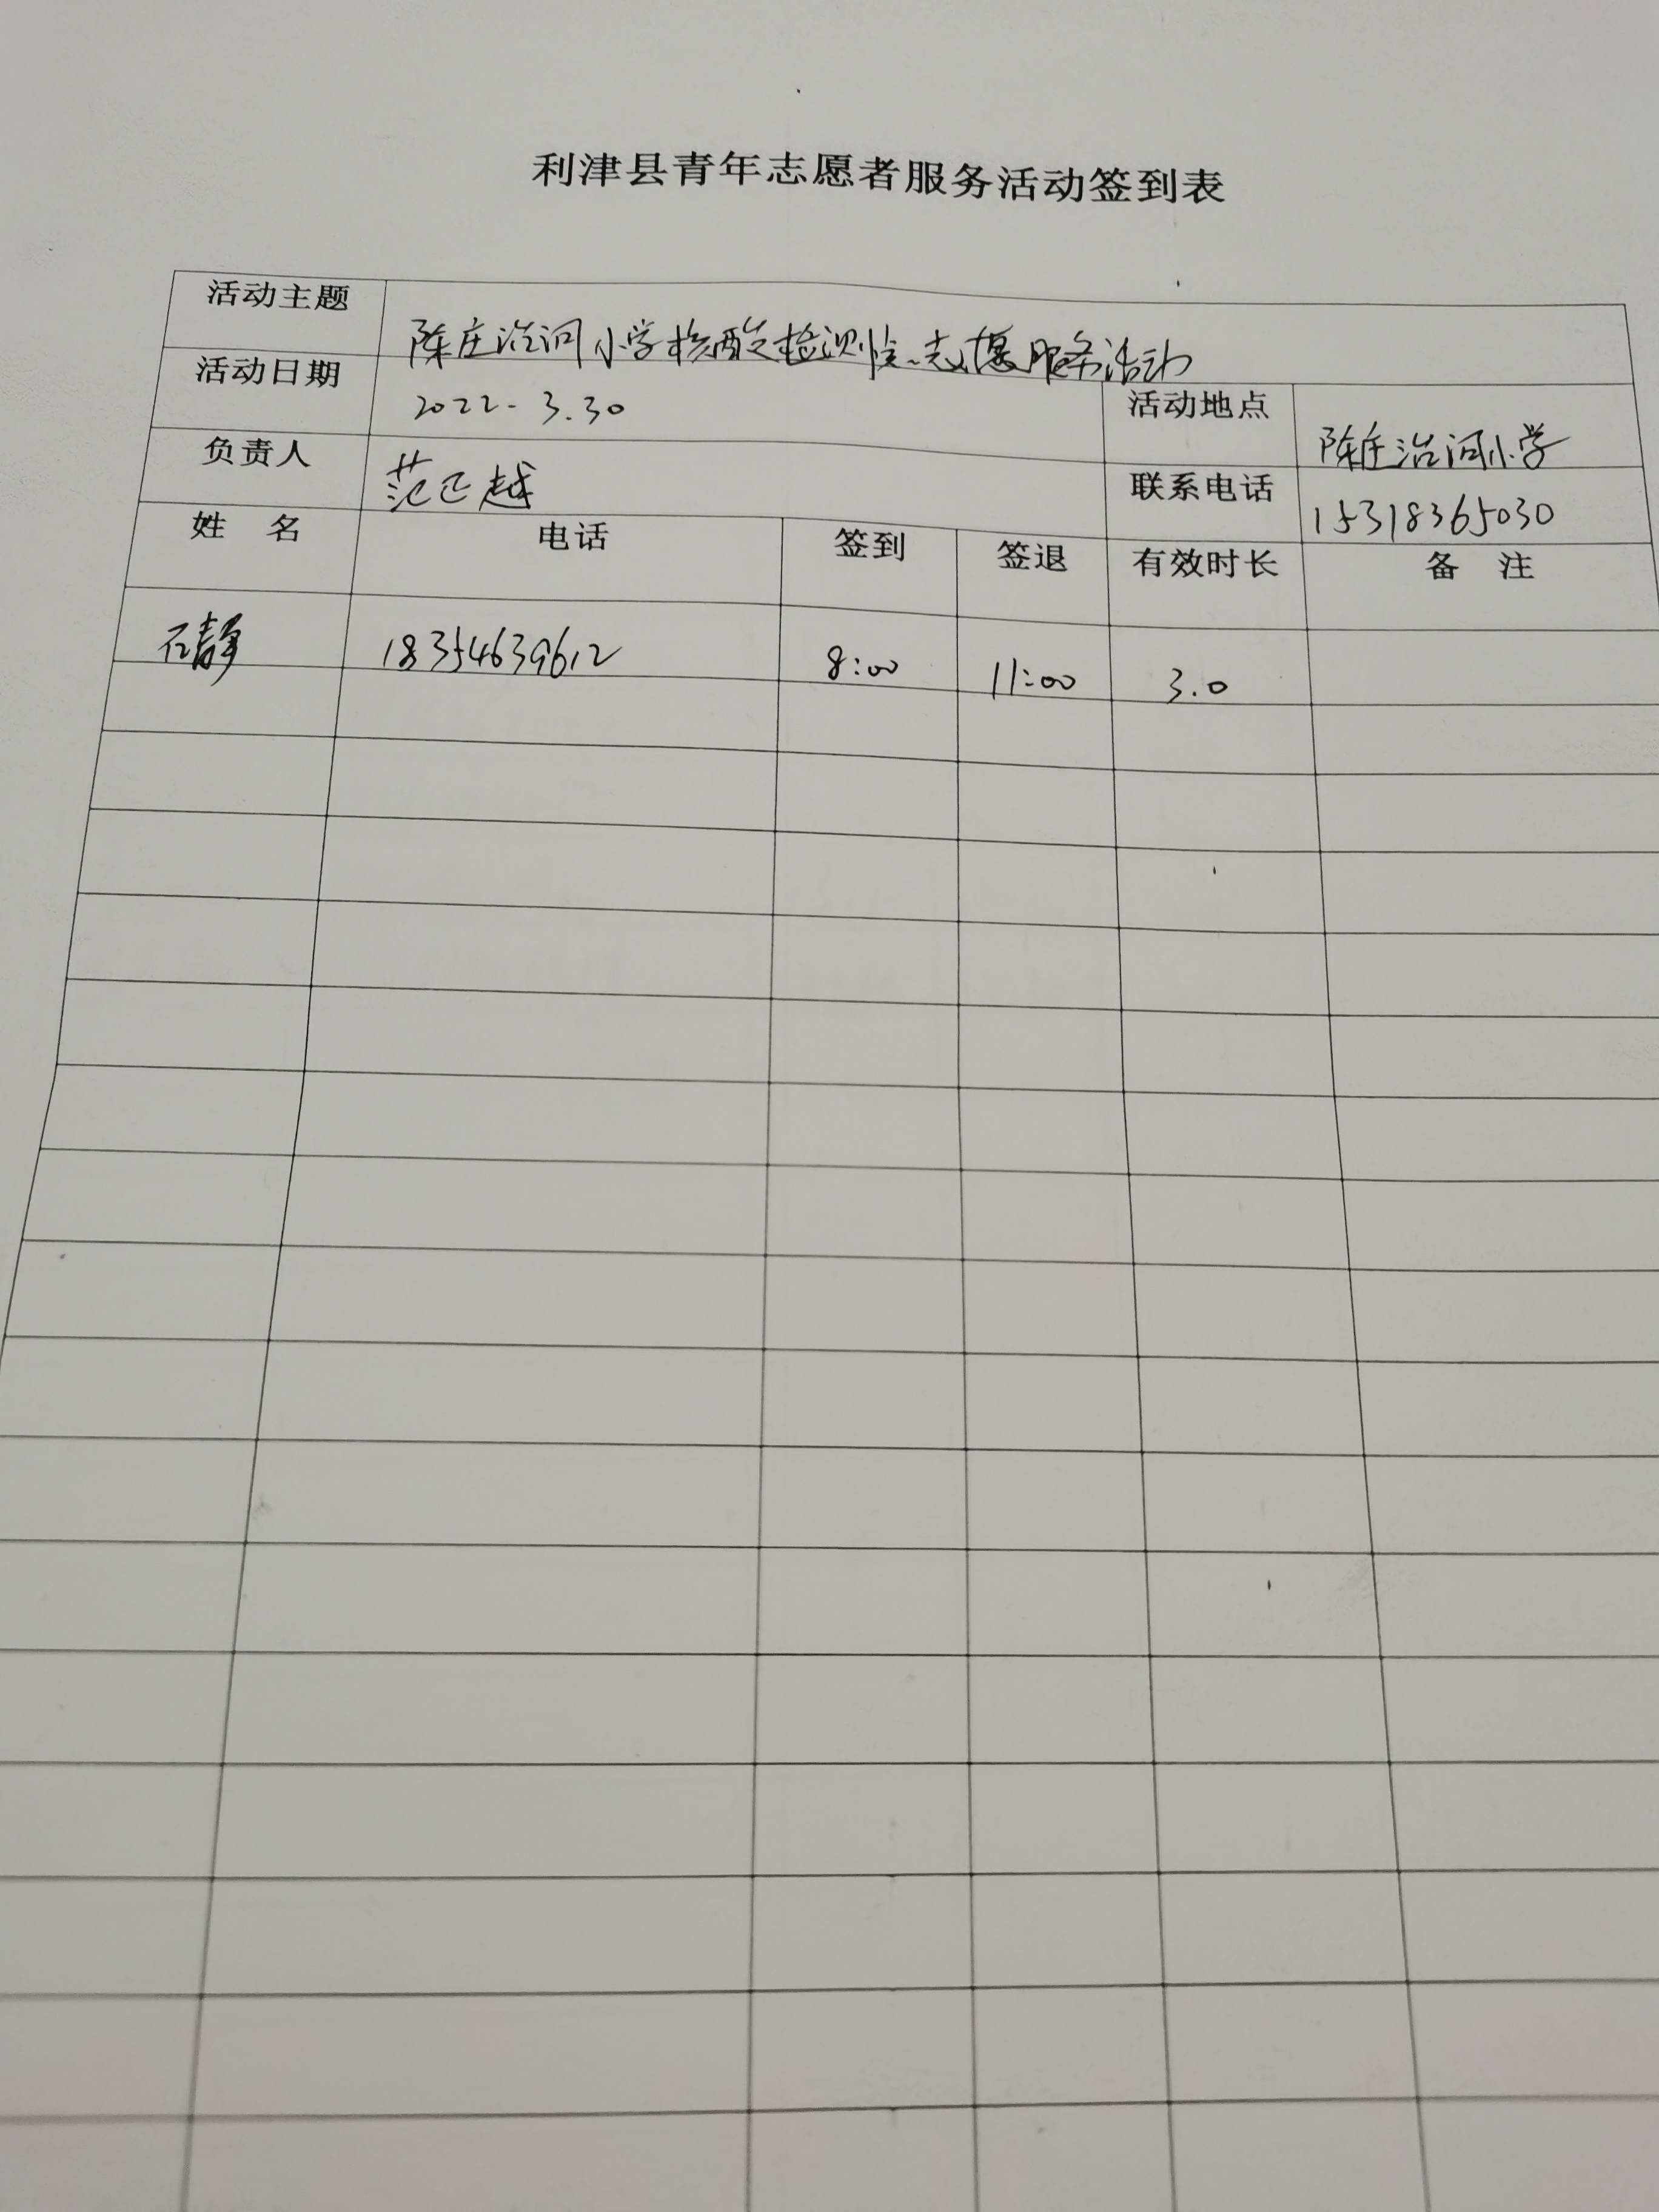 利津县青年志愿者服务活动签到表
活动主题 陈庄治河小学核酸检测点志愿服务活动
活动日期 2022.3.30 活动地点 陈庄治河小学
负责人 范正越 联系电话 15318365030
姓 名 电话 签到 签退 有效时长 备 注
石静 18354639612 8:00 11:00 3.0